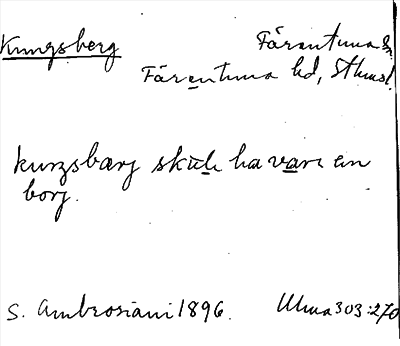 Kungsberg Färentuna sn
Färentuna hd, Sthlmsl.
kungsbærg skulle ha vare en
borg.
S. Ambrosiani 1896. Ulma 303:270